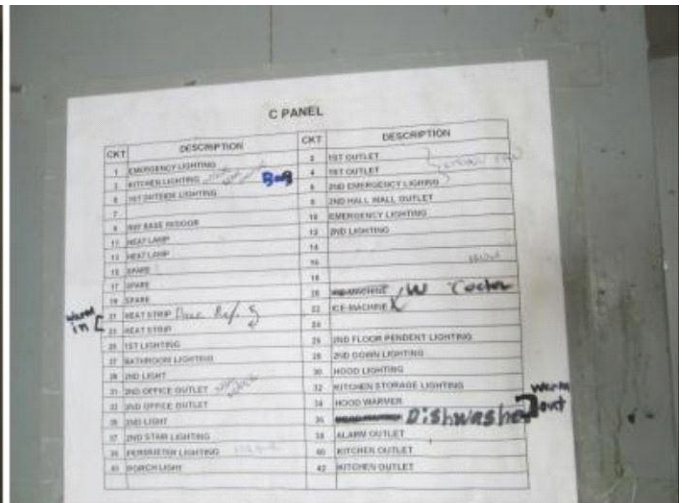 C PANEL
CKT DESCRIPTION CKT DESCRIPTION
1 EMERGENCY LIGHTING 2 1ST OUTLET
3 KITCHEN LIGHTING 4 1ST OUTLET
1ST OUTSIDE LIGHTING 6 2ND EMERGENCY LIGHTING
7 8 2ND HALL WALL OUTLET
9 REF BASE INDOOR 10 EMERGENCY LIGHTING
11 HEAT LAMP 12 2ND LIGHTING
13 HEAT LAMP 14
15 SPARE 16
17 SPARE 18
19 SPARE 20 W
21 HEAT STRIP 22 ICE MACHINE
23 HEAT STRIP 24
warm in
25 1ST LIGHTING 26 2ND FLOOR PENDENT LIGHTING
27 BATHROOM LIGHTING 28 2ND DOWN LIGHTING
29 2ND LIGHT 30 HOOD LIGHTING
31 2ND OFFICE OUTLET 32 KITCHEN STORAGE LIGHTING
33 2ND OFFICE OUTLET 34 HOOD WARMER
35 2ND LIGHT 36 Dishwasher
warm out
37 2ND STAIR LIGHTING 38 ALARM OUTLET
39 PERIMETER LIGHTING 40 KITCHEN OUTLET
41 PORCH LIGHT 42 KITCHEN OUTLET